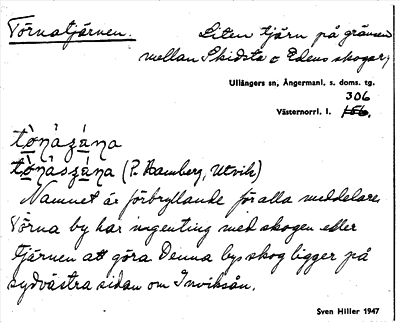 Törnatjärnen.
Liten tjärn på gränsen
mellan Skidsta o Edens skogar,
Ullångers sn, Ångermanl. s. doms. tg.
306
Västernorrl. l. 156.
(P. Hamberg, Utvik)
Namnet är förbryllande för alla meddelare.
Törna by har ingenting med skogen eller
tjärnen att göra Denna bys skog ligger på
sydvästra sidan om Inviksån.
Sven Hiller 1947